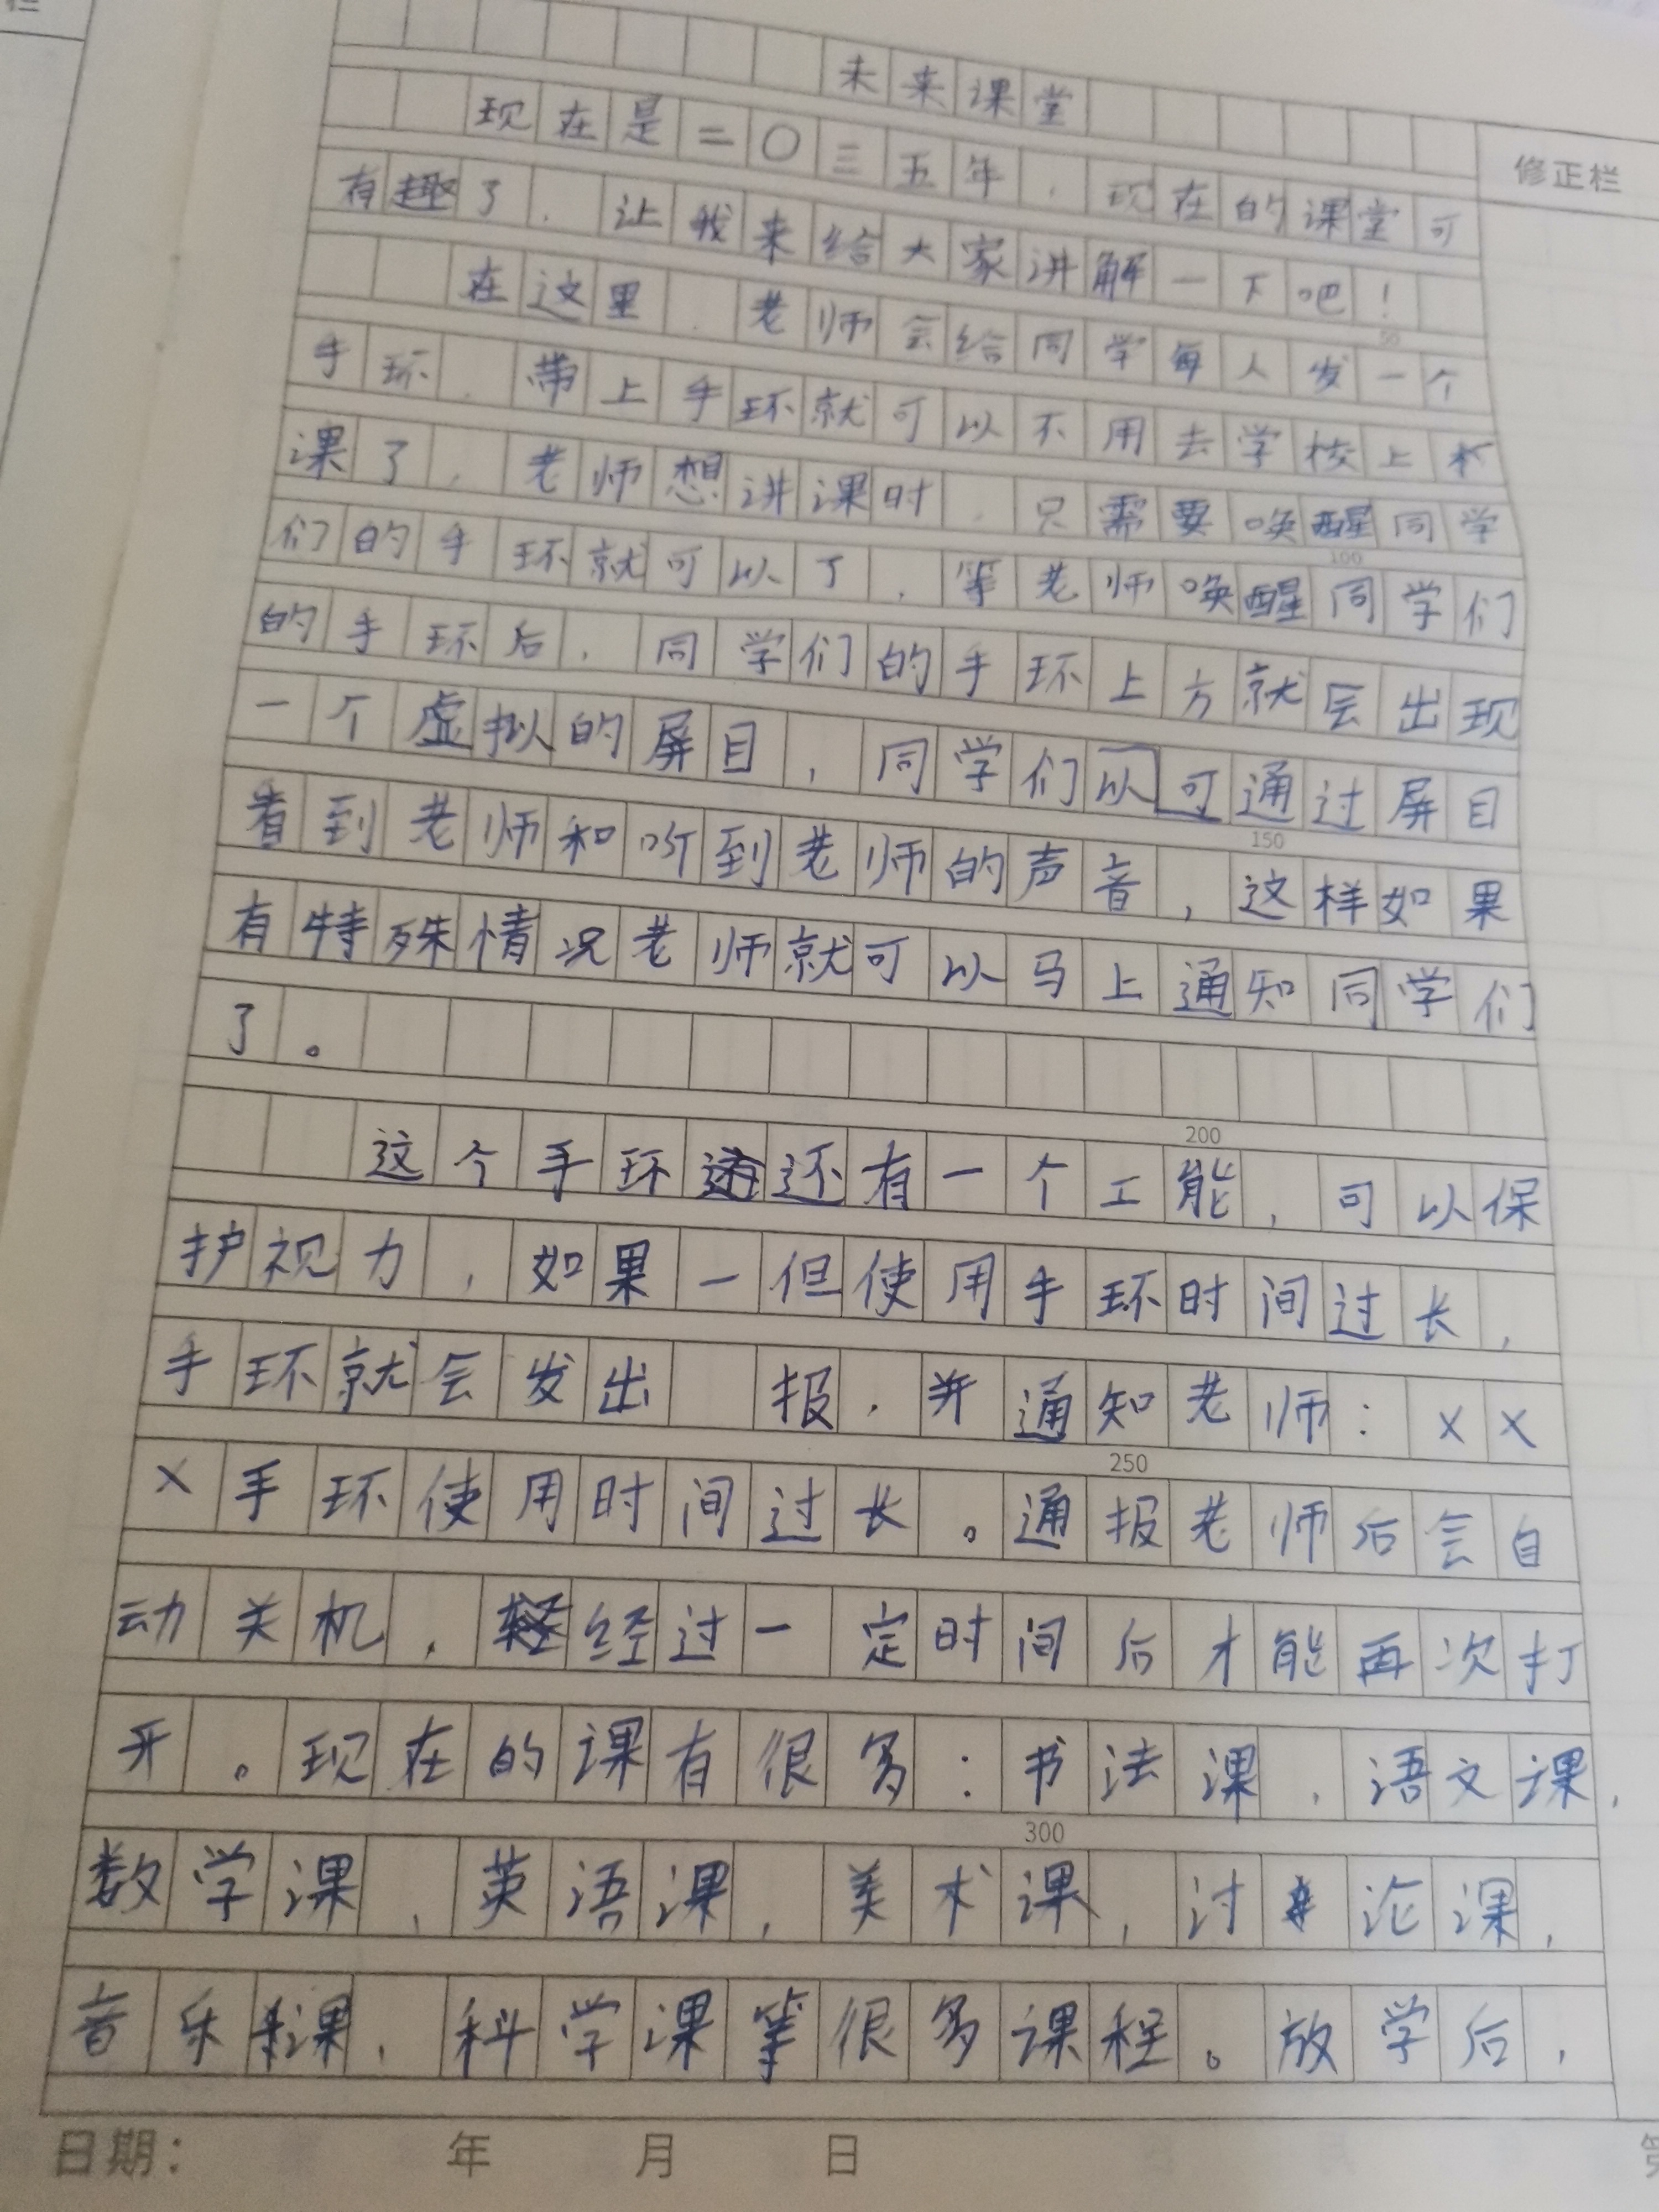 栏
未来课堂
修正栏
现在是二〇三五年，现在的课堂可
有趣了，让我来给大家讲解一下吧！
50
在这里，老师会给同学每人发一个
手环，带上手环就可以不用去学校上
课了，老师想讲课时，只需要唤醒同学
100
们的手环就可以了，等老师唤醒同学们
的手环后，同学们的手环上方就会出现
一个虚拟的屏目，同学们以可通过屏目
150
看到老师和听到老师的声音，这样如果
有特殊情况老师就可以马上通知同学们
了。
200
这个手环还有一个工能，可以保
护视力，如果一但使用手环时间过长，
手环就会发出 报，并通知老师：××
250
×手环使用时间过长。通报老师后会自
动关机，经过一定时间后才能再次打
开。现在的课有很多：书法课，语文课，
300
数学课，英语课，美术课，讨论课，
音乐课，科学课等很多课程。放学后，
日期： 年 月 日
第